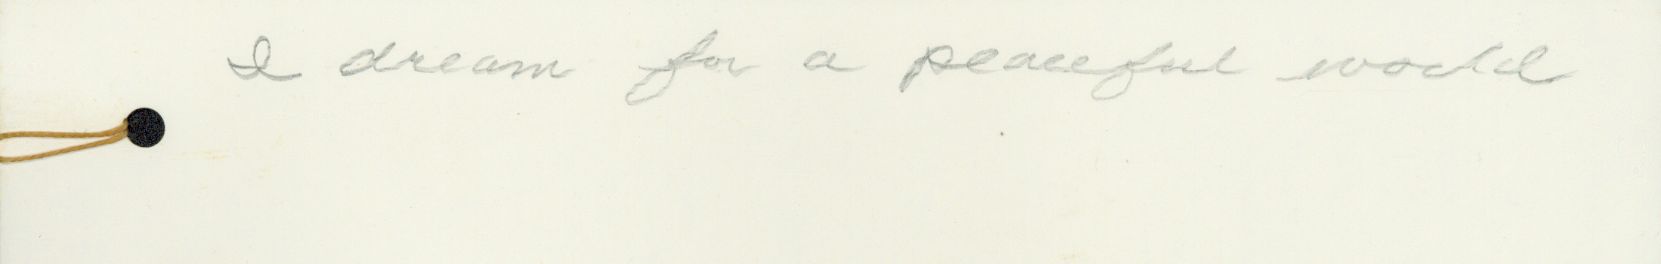 I dream for a peaceful world